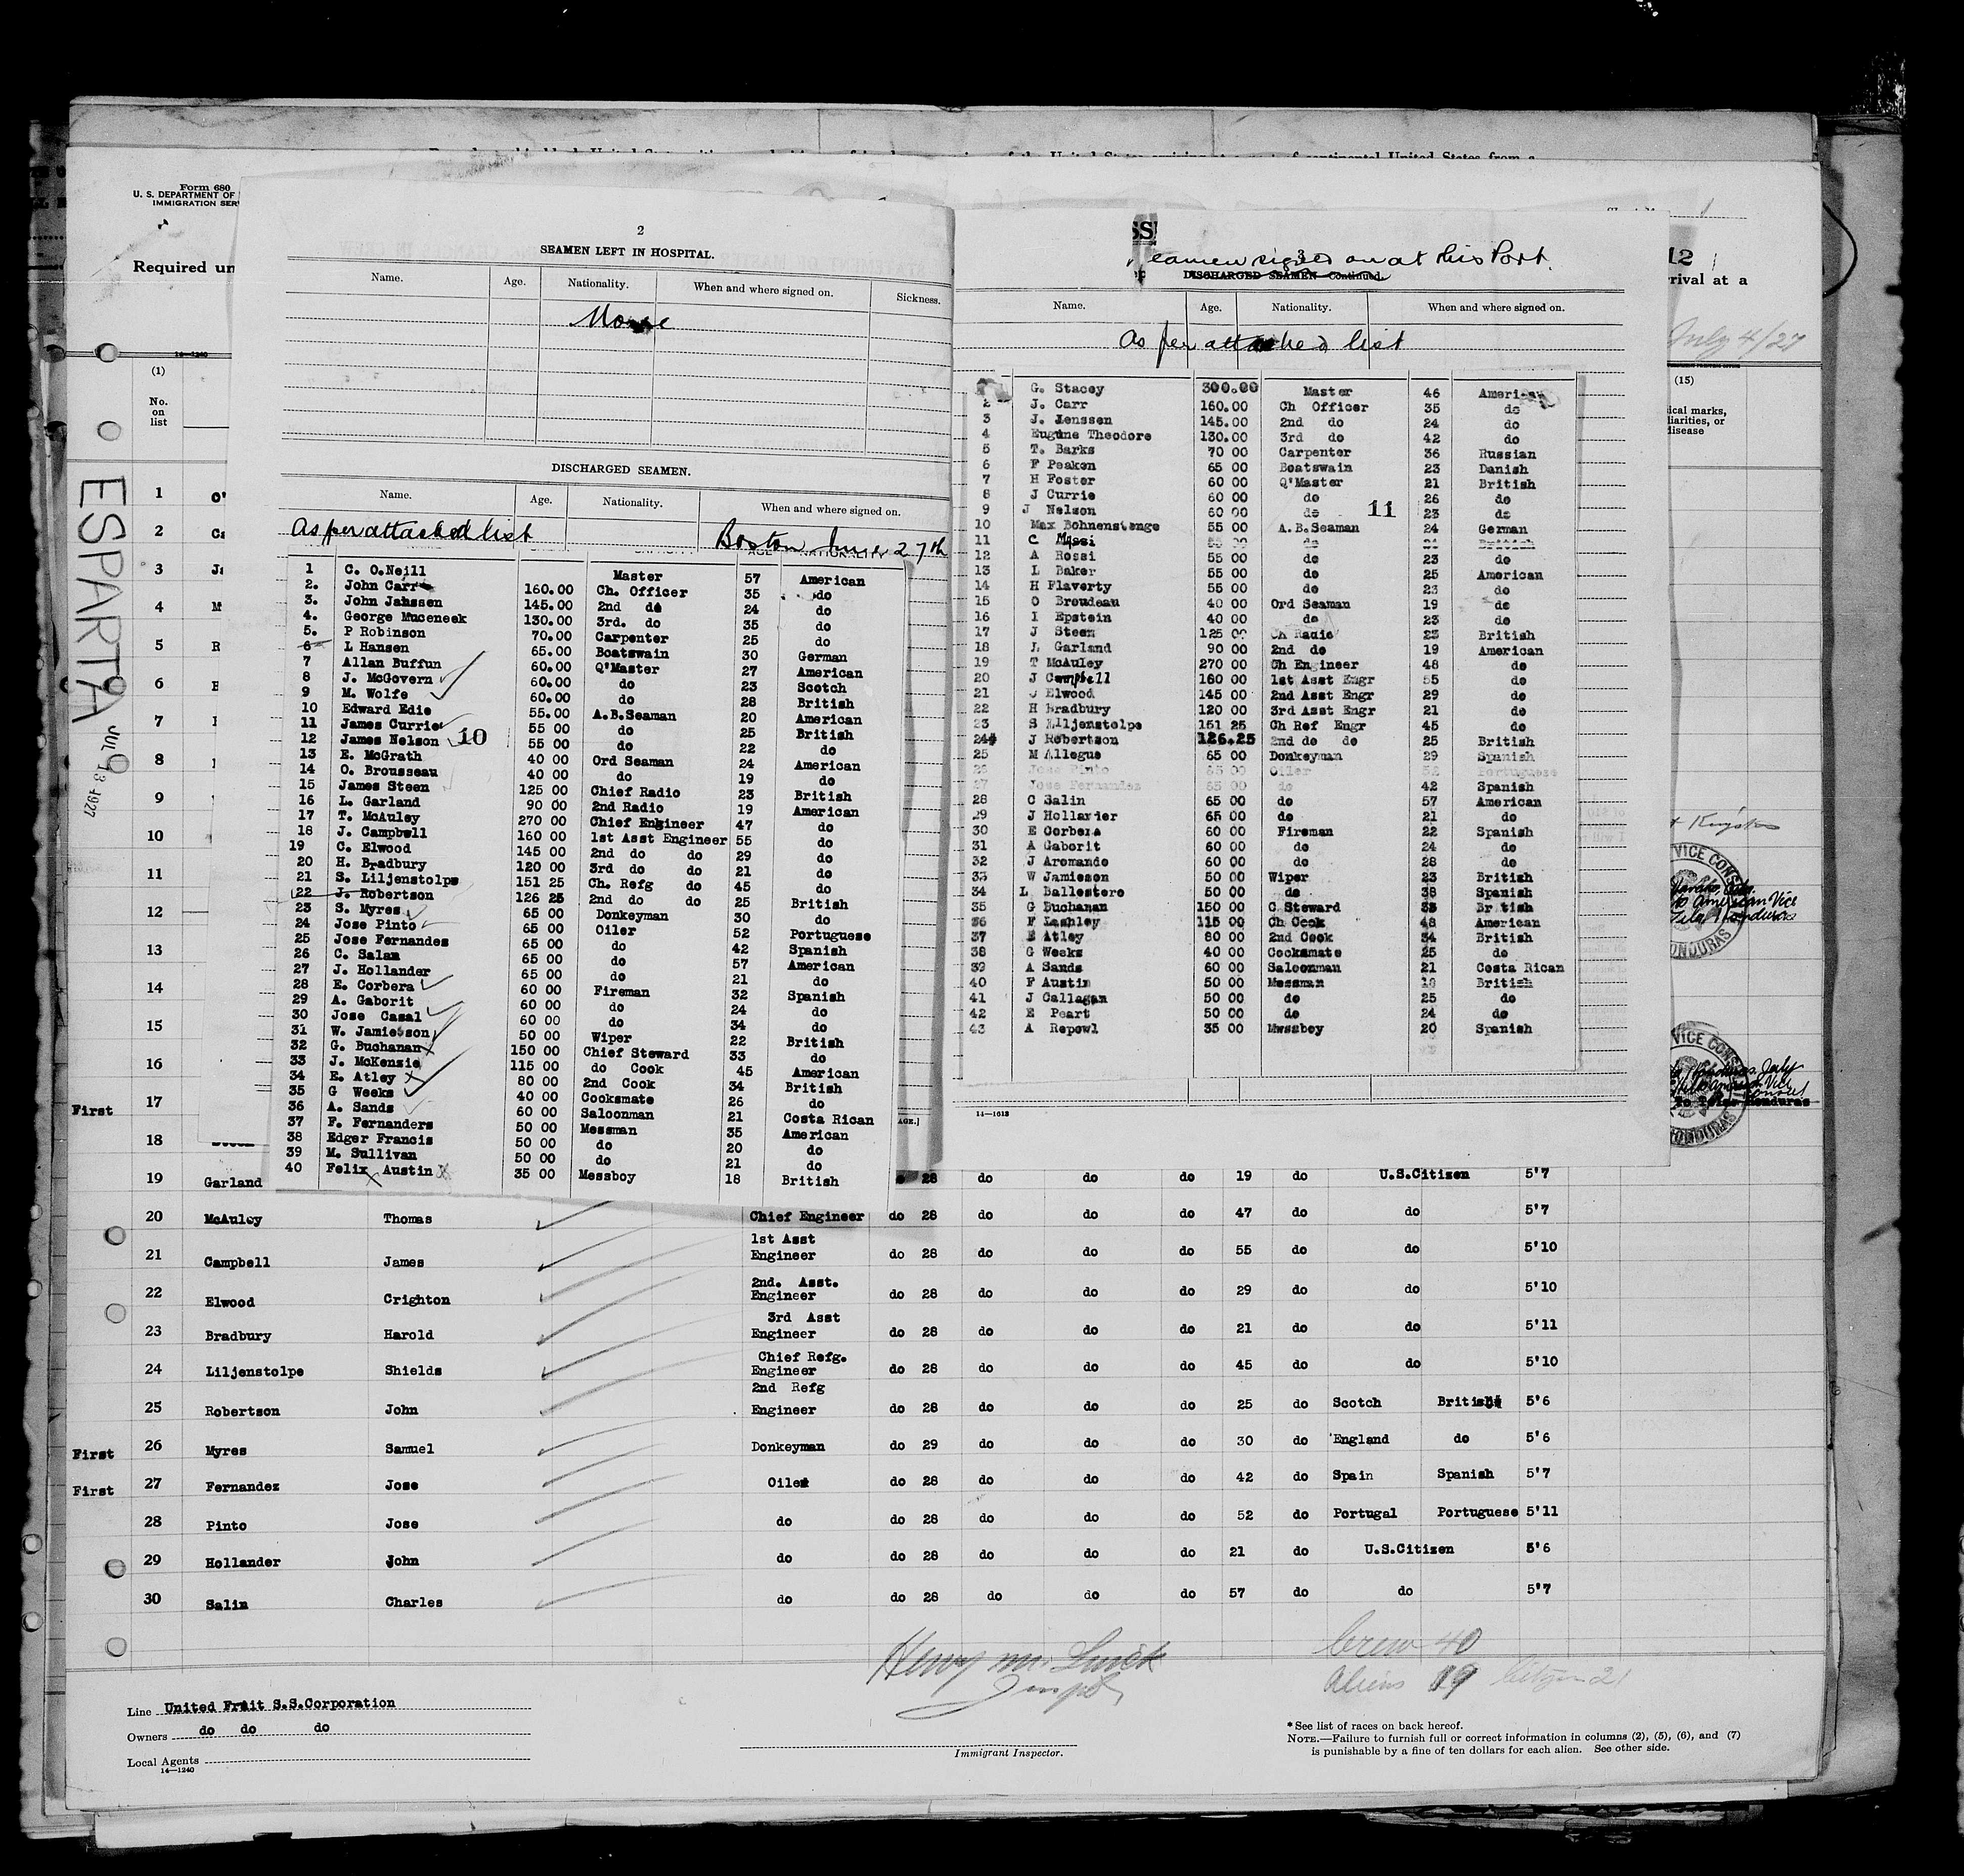 Form 680
U. S. DEPARTMENT OF
IMMIGRATION SER
Required un
14—1240
(1)
No.
on
list
ESPARTA
JUL 13 1927
1 O'
2 Ca
3 Ja
4 M
5 R
6 E
7
8
9
10
11
12
13
14
15
16
First 17
18
2
SEAMEN LEFT IN HOSPITAL.
Name. Age. Nationality. When and where signed on. Sickness.
None
DISCHARGED SEAMEN.
Name. Age. Nationality. When and where signed on.
As per attached list Boston June 27th
1 C. O.Neill Master 57 American
2. John Carr 160.00 Ch. Officer 35 do
3. John Janssen 145.00 2nd do 24 do
4. George Muceneek 130.00 3rd. do 35 do
5. P Robinson 70.00 Carpenter 25 do
6 L Hansen 65.00 Boatswain 30 German
7 Allan Buffun 60.00 Q'Master 27 American
8 J. McGovern 60.00 do 23 Scotch
9 M. Wolfe 60.00 do 28 British
10 Edward Edie 55.00 A.B.Seaman 20 American
11 James Currie 55 00 do 25 British
12 James Nelson 55 00 do 22 do
10
13 E. McGrath 40 00 Ord Seaman 24 American
14 O. Brousseau 40 00 do 19 do
15 James Steen 125 00 Chief Radio 23 British
16 L. Garland 90 00 2nd Radio 19 American
17 T. McAuley 270 00 Chief Engineer 47 do
18 J. Campbell 160 00 1st Asst Engineer 55 do
19 C. Elwood 145 00 2nd do do 29 do
20 H. Bradbury 120 00 3rd do do 21 do
21 S. Liljenstolpe 151 25 Ch. Refg do 45 do
22 J. Robertson 126 25 2nd do do 25 British
23 S. Myres 65 00 Donkeyman 30 do
24 Jose Pinto 65 00 Oiler 52 Portuguese
25 Jose Fernandes 65 00 do 42 Spanish
26 C. Salam 65 00 do 57 American
27 J. Hollander 65 00 do 21 do
28 E. Corbera 60 00 Fireman 32 Spanish
29 A. Gaborit 60 00 do 24 do
30 Jose Casal 60 00 do 34 do
31 W. Jamieson 50 00 Wiper 22 British
32 G. Buchanan 150 00 Chief Steward 33 do
33 J. McKenzie 115 00 do Cook 45 American
34 E. Atley 80 00 2nd Cook 34 British
35 G Weeks 40 00 Cooksmate 26 do
36 A. Sands 60 00 Saloonman 21 Costa Rican
37 F. Fernanders 50 00 Messman 35 American
38 Edger Francis 50 00 do 20 do
39 M. Sullivan 50 00 do 21 do
40 Felix Austin 35 00 Messboy 18 British
SS
3
eamen signed on at this Port.
DISCHARGED SEAMEN—Continued.
Name. Age. Nationality. When and where signed on.
As per attached list
G. Stacey 300.00 Master 46 American
2 J. Carr 160.00 Ch Officer 35 do
3 J. Jenssen 145.00 2nd do 24 do
4 Eugene Theodore 130.00 3rd do 42 do
5 T. Barks 70 00 Carpenter 36 Russian
6 F Peaken 65 00 Boatswain 23 Danish
7 H Foster 60 00 Q'Master 21 British
8 J Currie 60 00 do 26 do
9 J Nelson 60 00 do 23 do
11
10 Max Bohnenstenge 55 00 A.B.Seaman 24 German
11 C Massi do British
12 A Rossi 55 00 do 23 do
13 L Baker 55 00 do 25 American
14 H Flaverty 55 00 do 23 do
15 O Broudeau 40 00 Ord Seaman 19 do
16 I Epstein 40 00 do 23 do
17 J Steen 125 00 Ch Radio 23 British
18 L Garland 90 00 2nd do 19 American
19 T McAuley 270 00 Ch Engineer 48 do
20 J Campbell 160 00 1st Asst Engr 55 do
21 J Elwood 145 00 2nd Asst Engr 29 do
22 H Bradbury 120 00 3rd Asst Engr 21 do
23 S Liljenstolpe 151 25 Ch Ref Engr 45 do
24 J Robertson 126.25 2nd do do 25 British
25 M Allegue 65 00 Donkeyman 29 Spanish
26 Jose Pinto 65 00 Oiler 52 Portuguese
27 Jose Fernandez 65 00 do 42 Spanish
28 C Salin 65 00 do 57 American
29 J Hollarier 65 00 do 21 do
30 E Corbera 60 00 Fireman 22 Spanish
31 A Gaborit 60 00 do 24 do
32 J Aromando 60 00 do 28 do
33 W Jamieson 50 00 Wiper 23 British
34 L Ballestero 50 00 do 38 Spanish
35 G Buchanan 150 00 C Steward 33 Br tish
36 F Lashley 115 00 Ch Cook 48 American
37 E Atley 80 00 2nd Cook 34 British
38 G Weeks 40 00 Cooksmate 25 do
39 A Sands 60 00 Saloonman 21 Costa Rican
40 F Austin 50 00 Messman 18 British
41 J Callagan 50 00 do 25 do
42 E Peart 50 00 do 24 do
43 A Repowl 35 00 Mwssboy 20 Spanish
14—1613
12
rival at a
July 4/27
(15)
ical marks,
liarities, or
disease
Kingston
VICE CONS
American Vice
Tela, Honduras
HONDURAS
VICE CONS
HONDURAS
19 Garland 28 do do do 19 do U.S.Citizen 5'7
20 McAuley Thomas Chief Engineer do 28 do do do 47 do do 5'7
21 Campbell James 1st Asst Engineer do 28 do do do 55 do do 5'10
22 Elwood Crighton 2nd. Asst. Engineer do 28 do do do 29 do do 5'10
23 Bradbury Harold 3rd Asst Engineer do 28 do do do 21 do do 5'11
24 Liljenstolpe Shields Chief Refg. Engineer do 28 do do do 45 do do 5'10
25 Robertson John 2nd Refg Engineer do 28 do do do 25 do Scotch British 5'6
First 26 Myres Samuel Donkeyman do 29 do do do 30 do England do 5'6
First 27 Fernandez Jose Oiler do 28 do do do 42 do Spain Spanish 5'7
28 Pinto Jose do do 28 do do do 52 do Portugal Portuguese 5'11
29 Hollander John do do 28 do do do 21 do U.S.Citizen 5'6
30 Salin Charles do do 28 do do do 57 do do 5'7
Crew 40
Aliens 19 Citizen 21
Line United Fruit S.S.Corporation
Owners do do do
Local Agents
14—1240
Immigrant Inspector.
* See list of races on back hereof.
NOTE.—Failure to furnish full or correct information in columns (2), (5), (6), and (7)
is punishable by a fine of ten dollars for each alien. See other side.